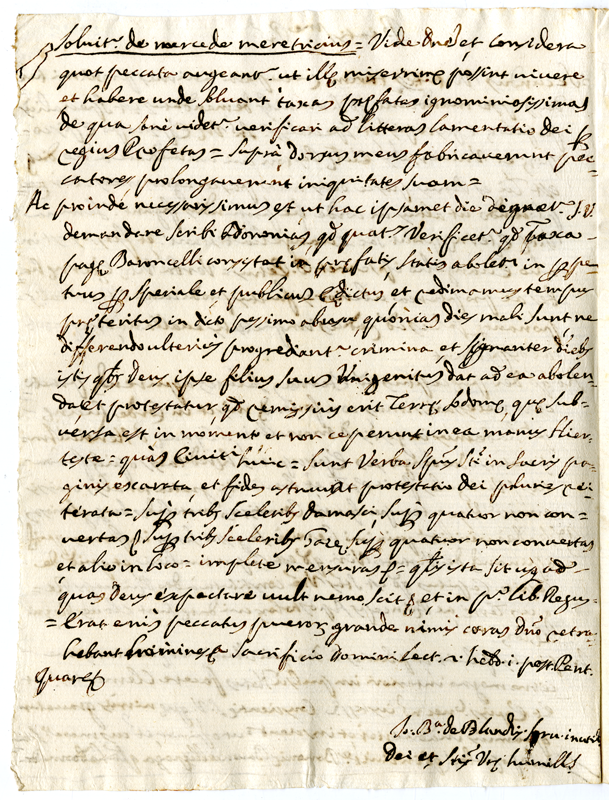 Solvit.r de mercede meretricius = Vide Dne et considera
quot peccata augeant.r ut illę miserrimę possint vivere
et habere unde solvant taxas prefatas ignominiosissimas
de qua sane videt.r verificari ad litteras lamentatio dei
Regius Profetas = supra dorsus meus fabricaverunt pec=
catores prolongaverunt iniquitates suam =
Ac proinde necessarissimus est ut hac ipsamet die dignet.r
demandare scribi Bononias, qd quat.s verificet.r qd taxa
pag Baroncelli consistat in prefatis statis aboleri in perpe
tuus per speciale et publicus Edictus et redimamus tempus
preteritus in dicto pessimo abusu, quonias dies mali sunt ne
differendo ulterius progrediant.r crimina et diebus
istis qbs Deus ipse filius suus Unigenitus dat ad ea abolen
da et protestatur qd remissius erit Terrę Sodomę, quę sub=
versa est in momento et non ceperunt in ea manus Hier=
teste = quas Civit.i huic = sunt verba Spus Sti in sacris pa=
ginis exarata, et fides protestatio dei pluries rei
terata = sup trib sceleribs Damasci sup quatuor non con=
vertas sup tribs sceleribs Gazę sup quatuor non convertas
et alio in loco = implete mensuras = ista sit ad
quas Deus expectare vult nemo scit, et in p.o lib. Regus=
= Erat enis peccatus pueror grande nimis coras Dno retra
hebant homines a sacrificio Domini Lect. 2. hebd. i. post Pent.
quare
Jo. Ba. de Blandis serv. inutil
Dei et Stis Vrę humill.s